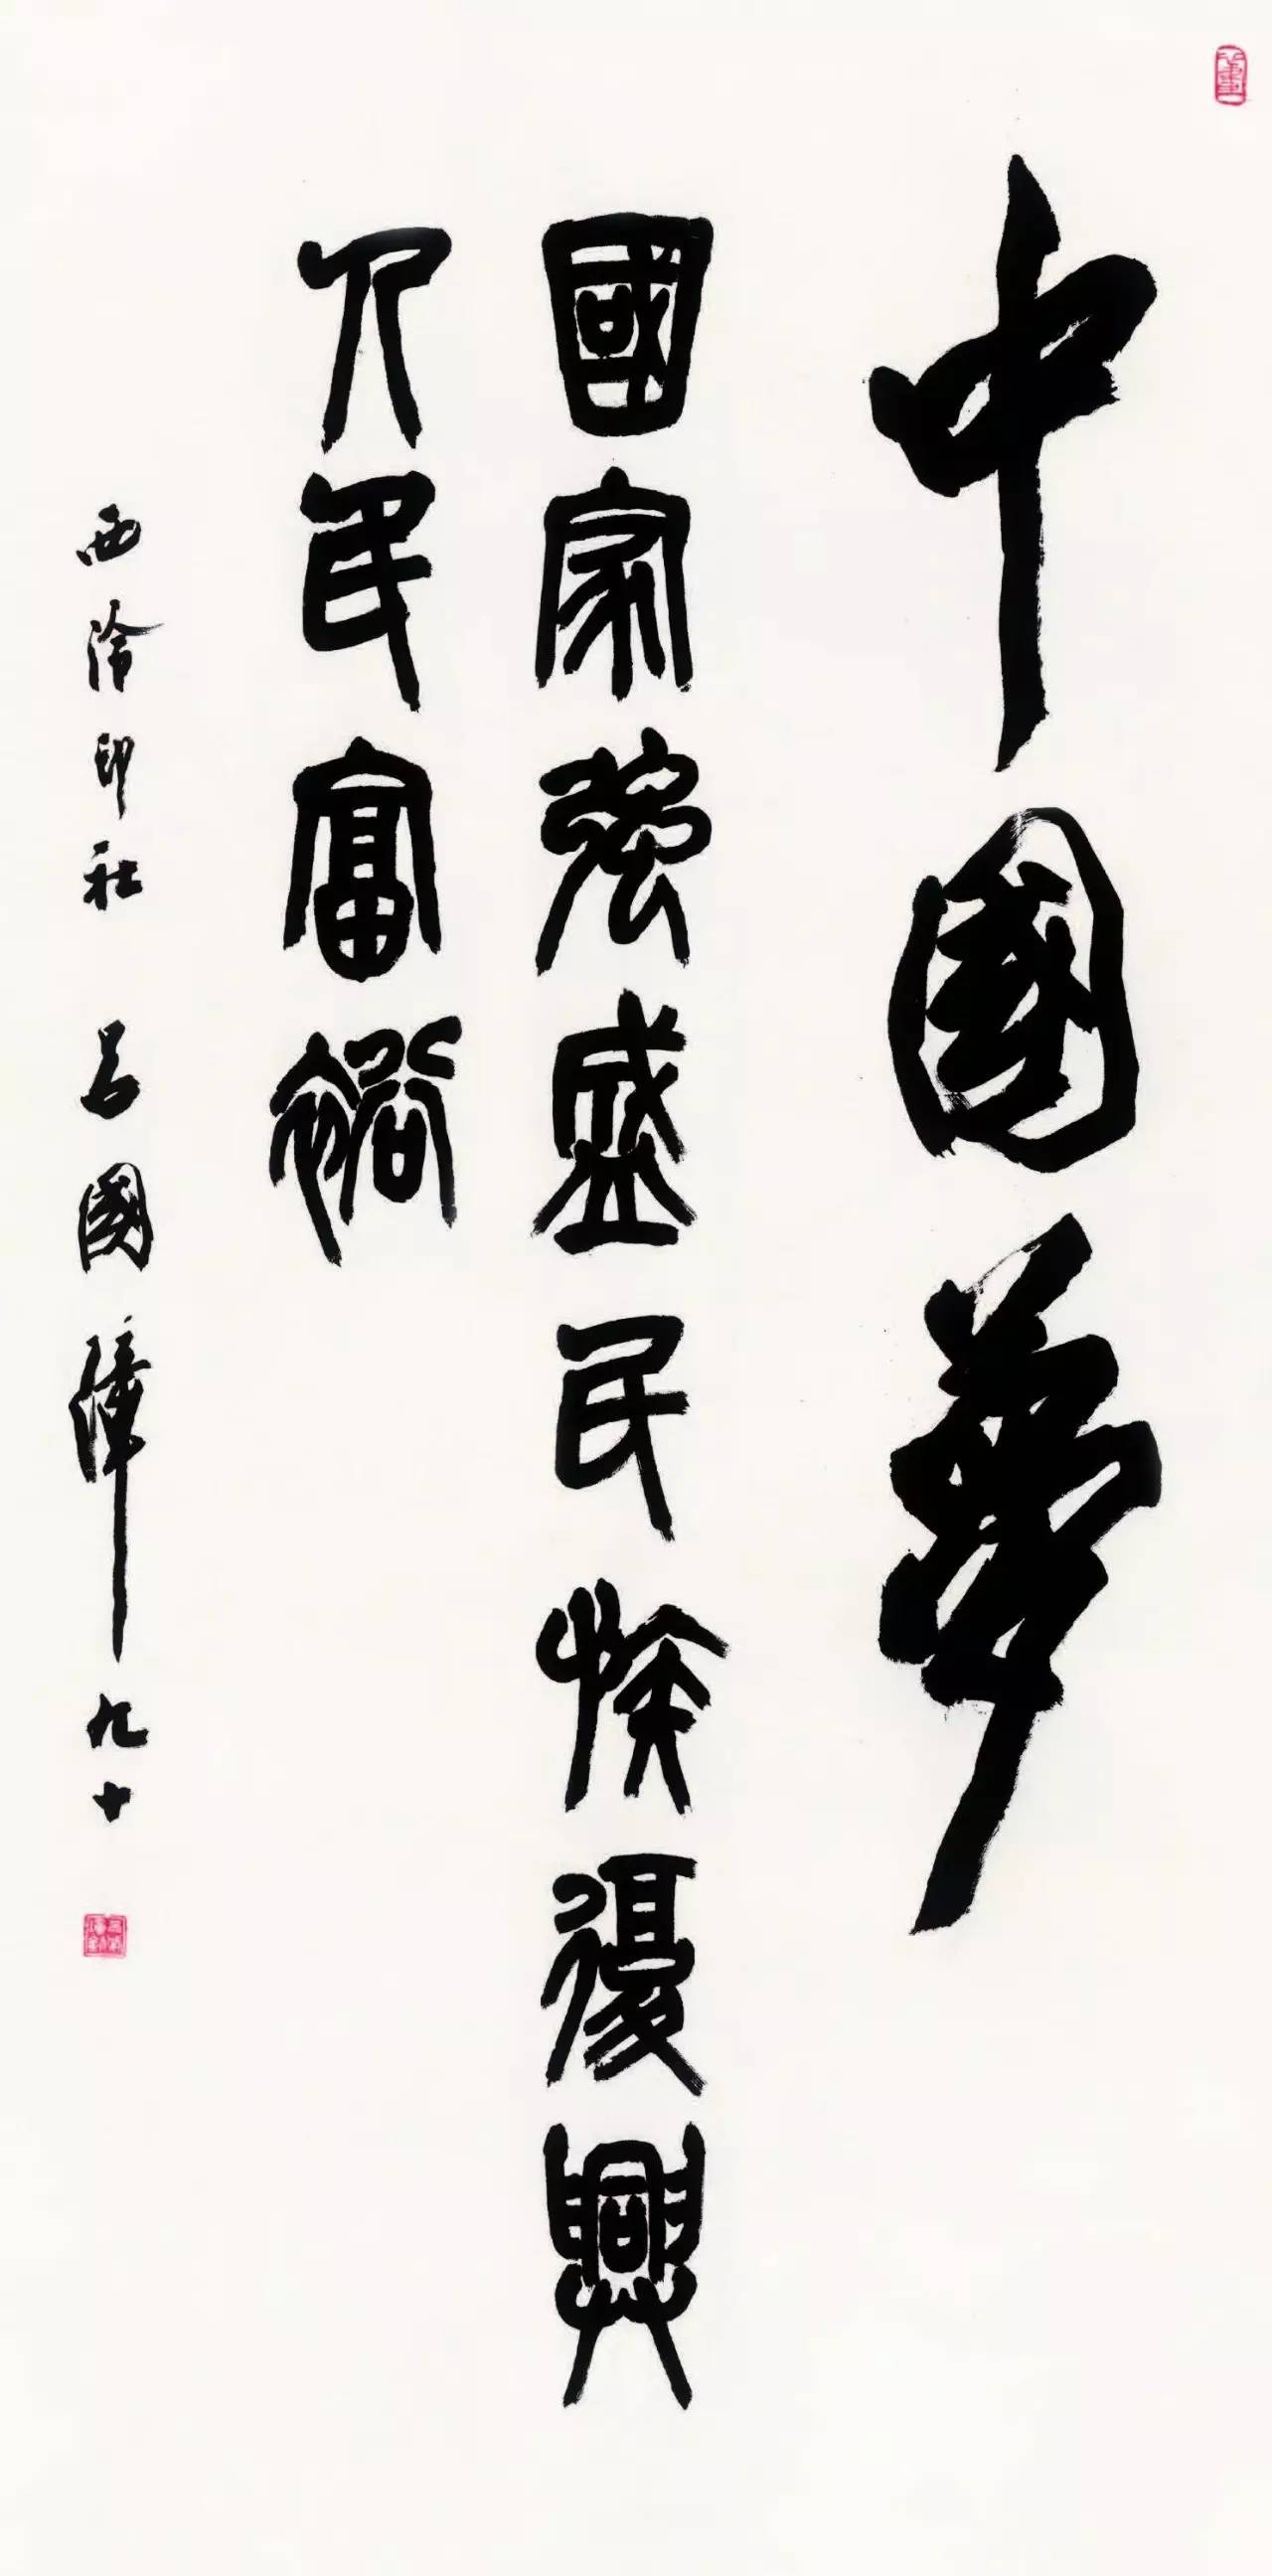 中國夢
國家強盛民族復興
人民富裕
西泠印社 呂國璋 九十